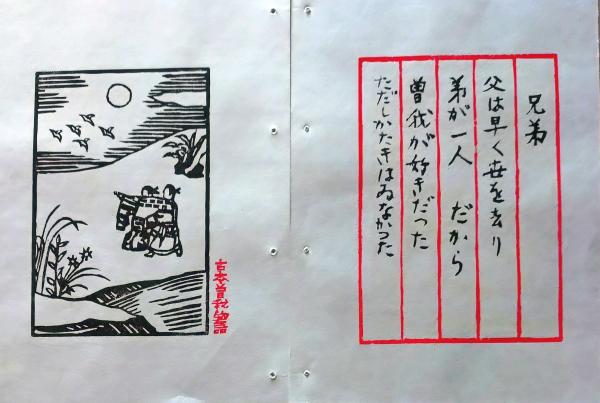 兄弟
父は早く世を去り
弟が一人　だから
曽我が好きだった
ただしかたきはゐなかった
古本曽我物語